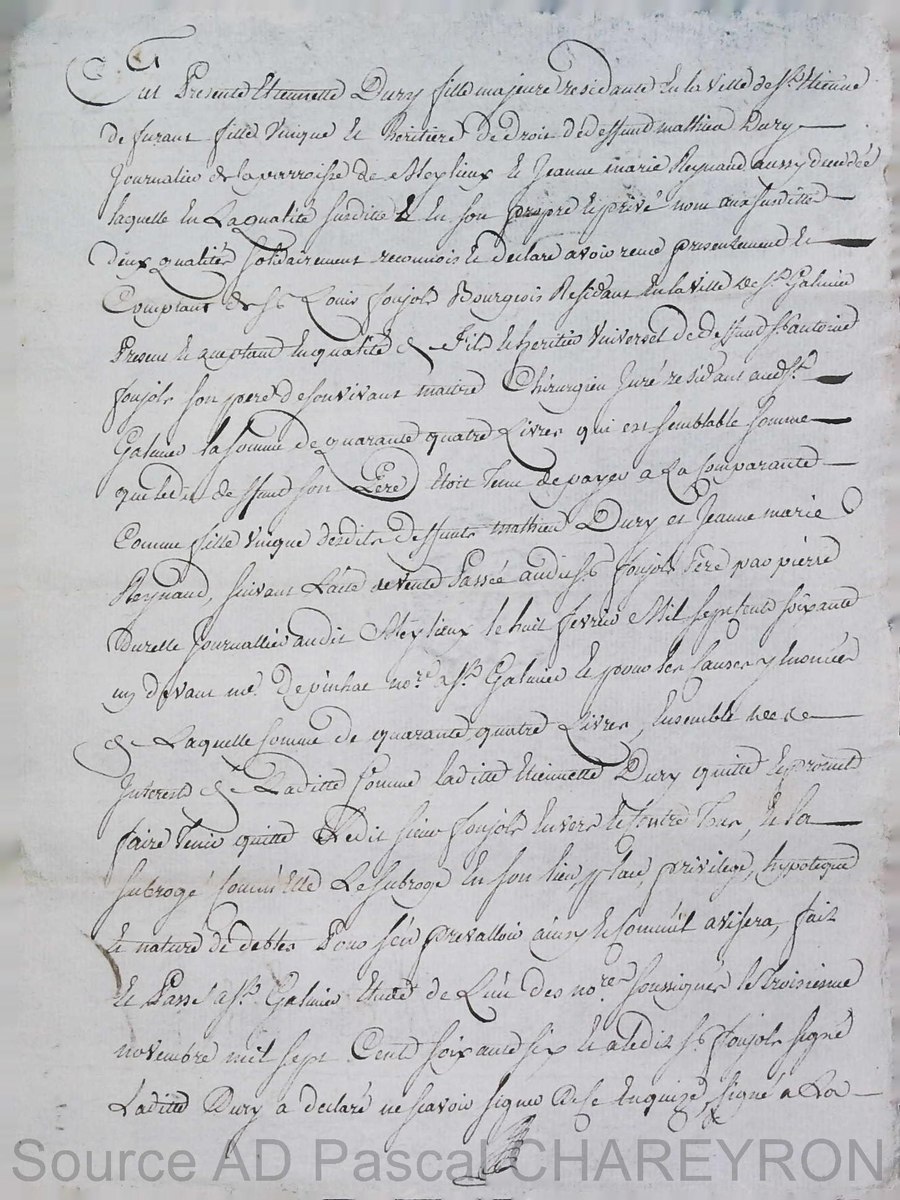 Fut Presente Etiennette Dury fille majeure residante en la ville de St. Etienne
de furant fille Unique et heritiere de droit de deffunt mathieu Dury
Journalier de la parroisse de Meylieux et Jeanne marie Reynaud aussy decédée
laquelle en La qualité susditte & en son propre et privé nom aux susdittes
deux qualités solidairement reconnois et declare avoir receu presentement et
Comptant de Sr. Louis foujols Bourgeois Residant en la ville de St. Galmier
Present et acceptant en qualité de fils et heritier Universel de deffunt Sr. antoine
foujols son pere de son vivant maitre Chirurgien Juré residant audt. St.
Galmier la somme de quarante quatre Livres qui est semblable somme
que ledit deffunt son Pere etoit tenu de payer a La Comparante
Comme fille Unique desdits deffunts mathieu Dury et Jeanne marie
Reynaud, suivant L'acte de vente Passée audit Sr. foujols Pere par pierre
Durelle Journallier audit Meylieux le huit fevrier Mil sept cent soixante
un devant me. Depinhac nore. a St. Galmier et pour les causes y enoncées
de Laquelle somme de quarante quatre Livres, Ensemble de
Interests de Laditte somme laditte Etiennette Dury quitte et promet
faire tenir quitte Ledit sieur foujols envers et contre tous, et la
subrogé comm'elle Le subroge en son lieu, place, privilege, hypoteque
et nature de debtes Pour s'en prevalloir ainsy et comm'il avisera, fait
et Passé a St. Galmier Etude de L'un des nores. soussignés le troisieme
novembre mil sept Cent soixante six et a ledit Sr. foujols signé
Laditte Dury a declaré ne scavoir signer de ce enquize, signé a La
Source AD Pascal CHAREYRON